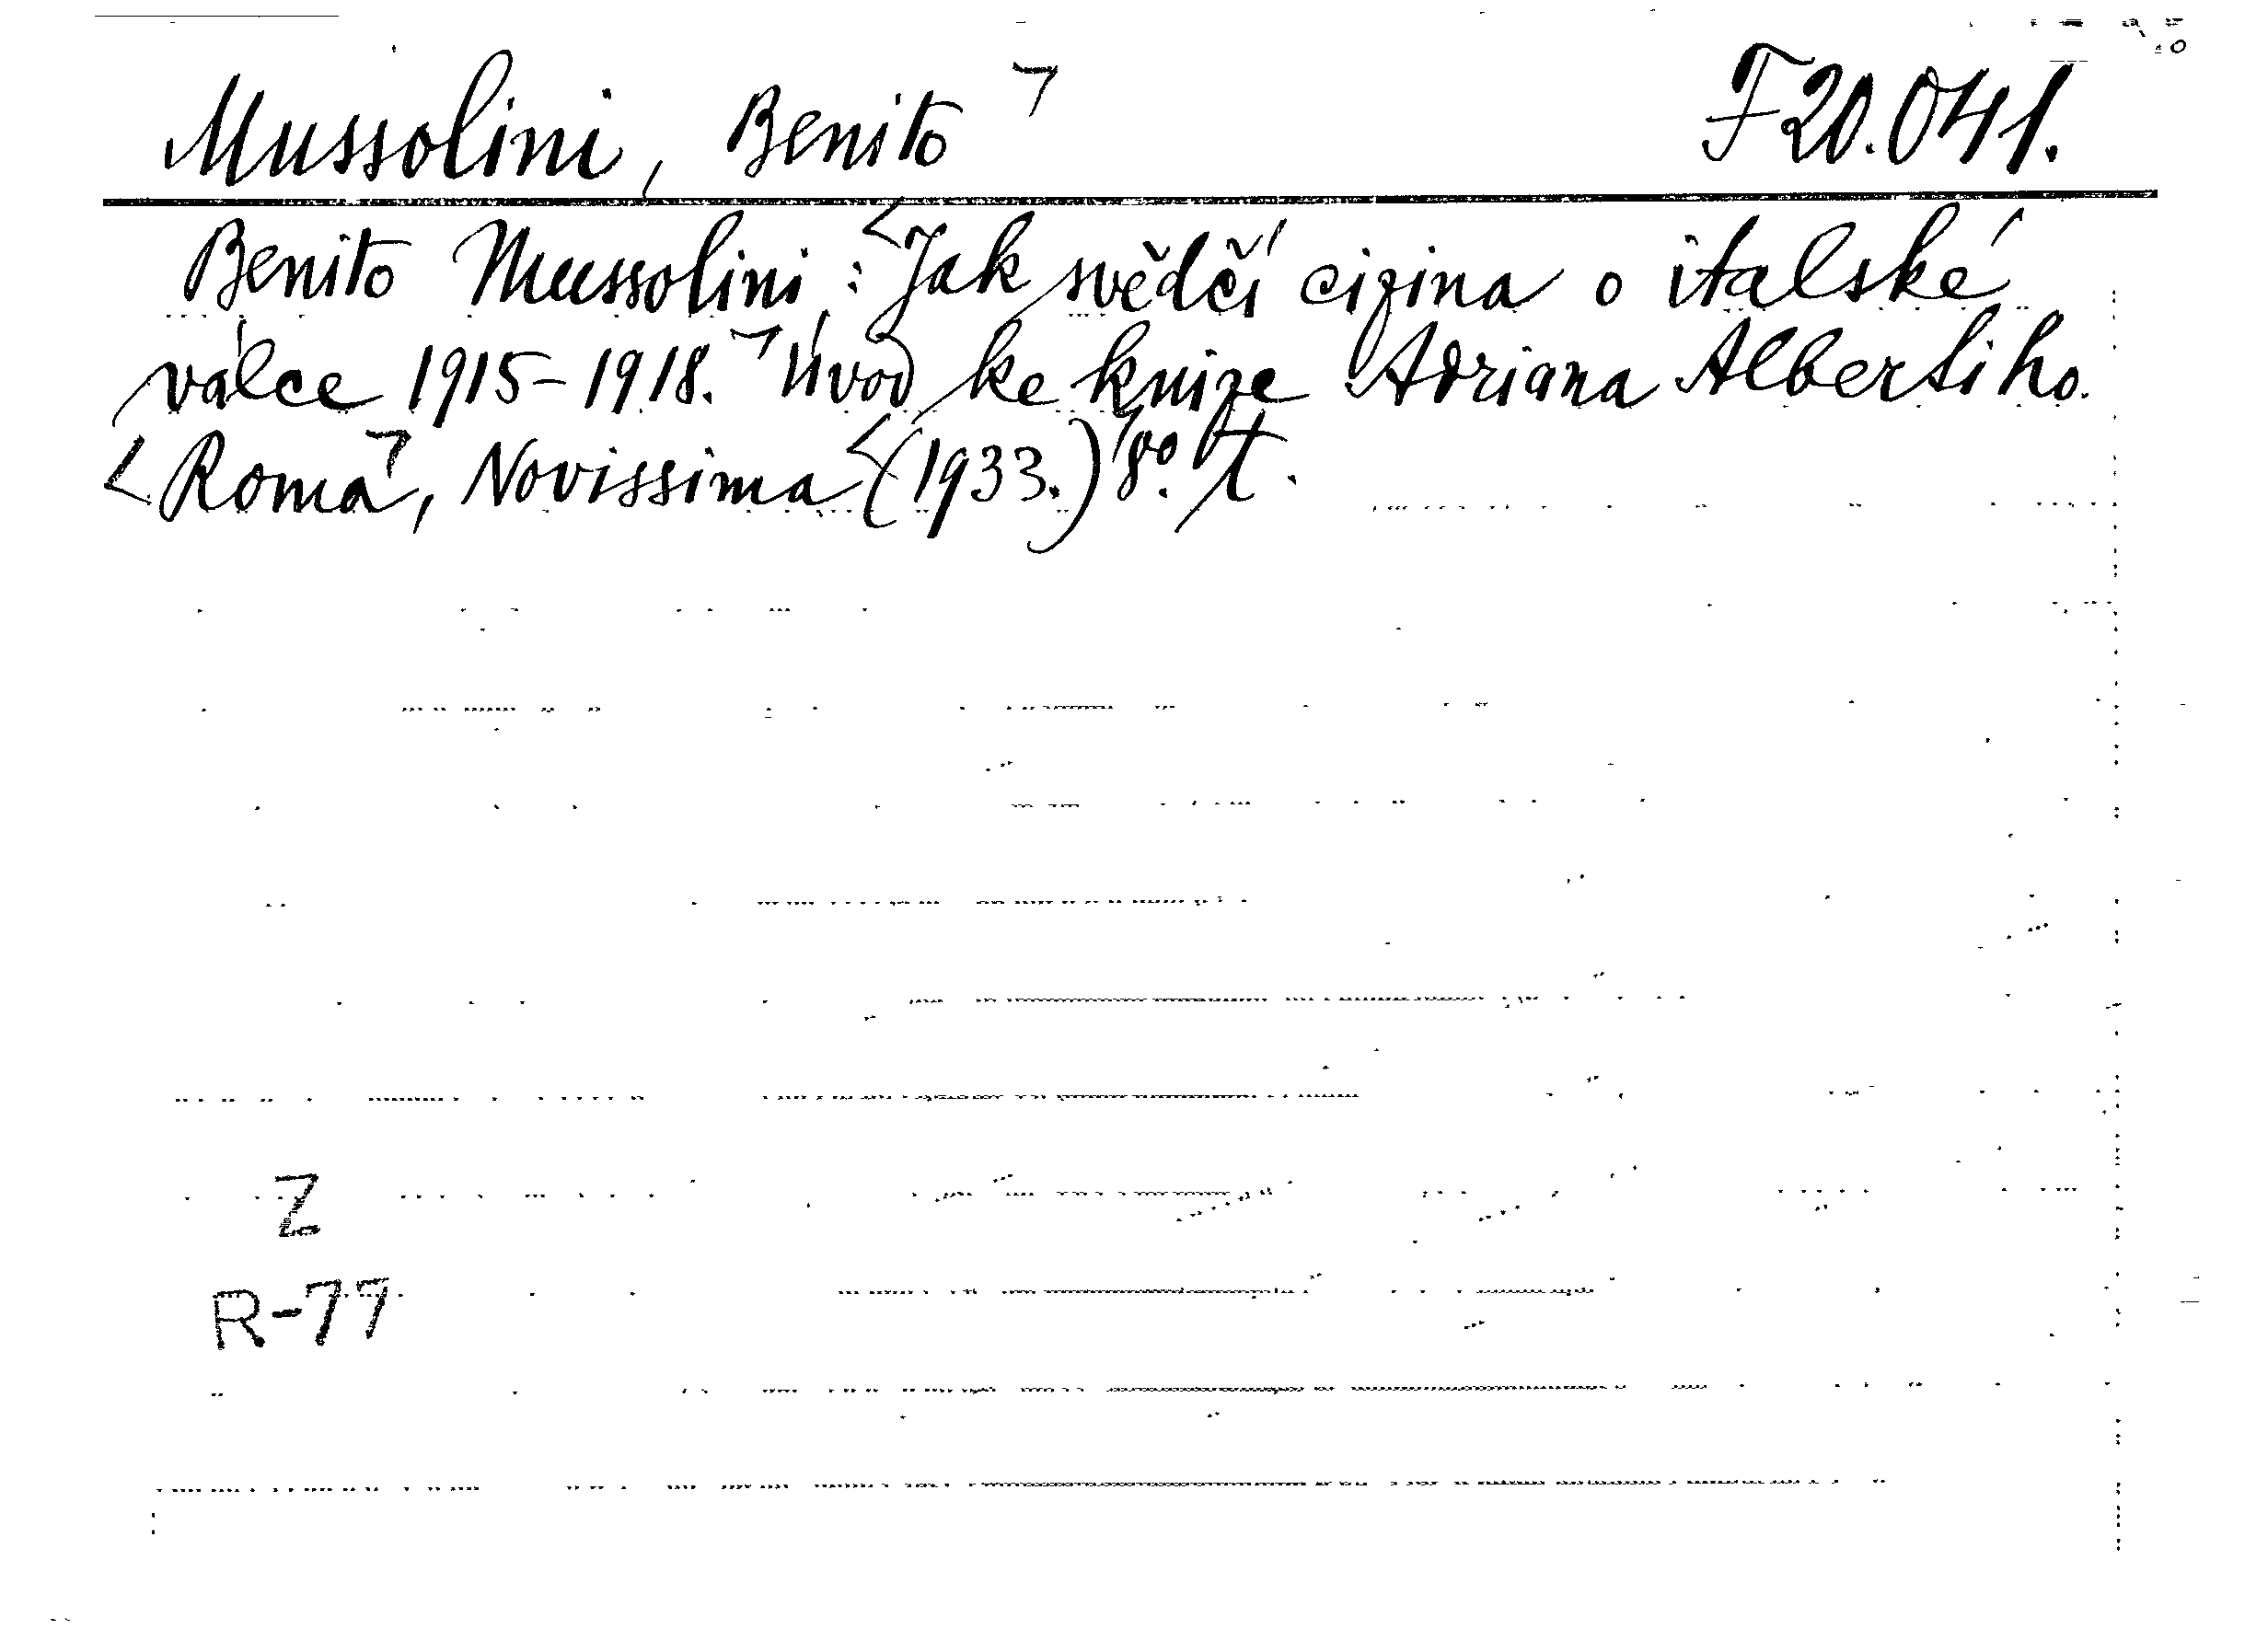 Mussolini, Benito ¬ F 20.041.
Benito Mussolini: <Jak svědčí cizina o italské
válce 1915-1918.¬ Úvod ke knize Adriana Albertiho.
<Roma¬, Novissima <(1933.) 8º. T.
Z
R-77